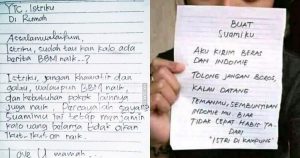 YTC, Istriku
Di Rumah
Assalamualaikum,
Istriku, sudah tau kan kalo ada
berita BBM naik..?
Istriku, jangan khawatir dan
galau, walaupun BBM naik
dan kebutuhan pokok lainnya
juga naik. Percayalah sayang
Suamimu ini tetap menjamin
kalo uang belanja tidak akan
Ikut-Ikutan naik
Love U mamah...
BUAT
SUAMIKU
AKU KIRIM BERAS
DAN INDOMIE
TOLONG JANGAN BOROS,
KALAU DATANG
TEMANMU, SEMBUNYIKAN
INDOMIE MU BIAR
TIDAK CEPAT HABIS YA
DARI
"ISTRI DI KAMPUNG